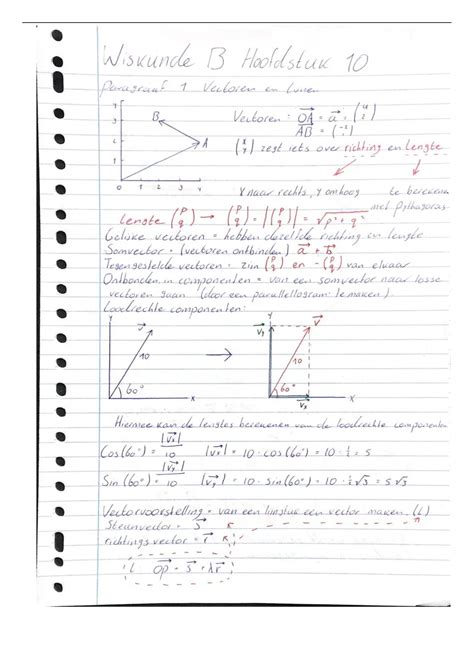 Wiskunde B Hoofdstuk 10
Paragraaf 1 Vectoren en Lijnen
Vectoren: OA⃗ = a⃗ = (4 2)
AB⃗ = (-2 1)
(x y) zegt iets over richting en lengte
x naar rechts, y omhoog
te berekenen met Pythagoras
Lengte (p q) → (p q) = |(p q)| = √p² + q²
Gelijke vectoren = hebben dezelfde richting en lengte
Somvector = (vectoren ontbinden) a⃗ + b⃗
Tegengestelde vectoren = zijn (p q) en -(p q) van elkaar
Ontbinden in componenten = van een somvector naar losse
vectoren gaan (door een parallellogram te maken).
Loodrechte componenten:
y v⃗ 10 60° x
→
y v⃗y v⃗ 10 60° v⃗x x
Hiermee kan de lengtes berekenen van de loodrechte componenten
Cos(60°) = |v⃗x| / 10 |v⃗x| = 10 · cos(60°) = 10 · ½ = 5
Sin(60°) = |v⃗y| / 10 |v⃗y| = 10 · sin(60°) = 10 · ½√3 = 5√3
Vectorvoorstelling = van een lijnstuk een vector maken. (L)
Steunvector = s⃗
richtingsvector = r⃗
L op⃗ = s⃗ + λr⃗